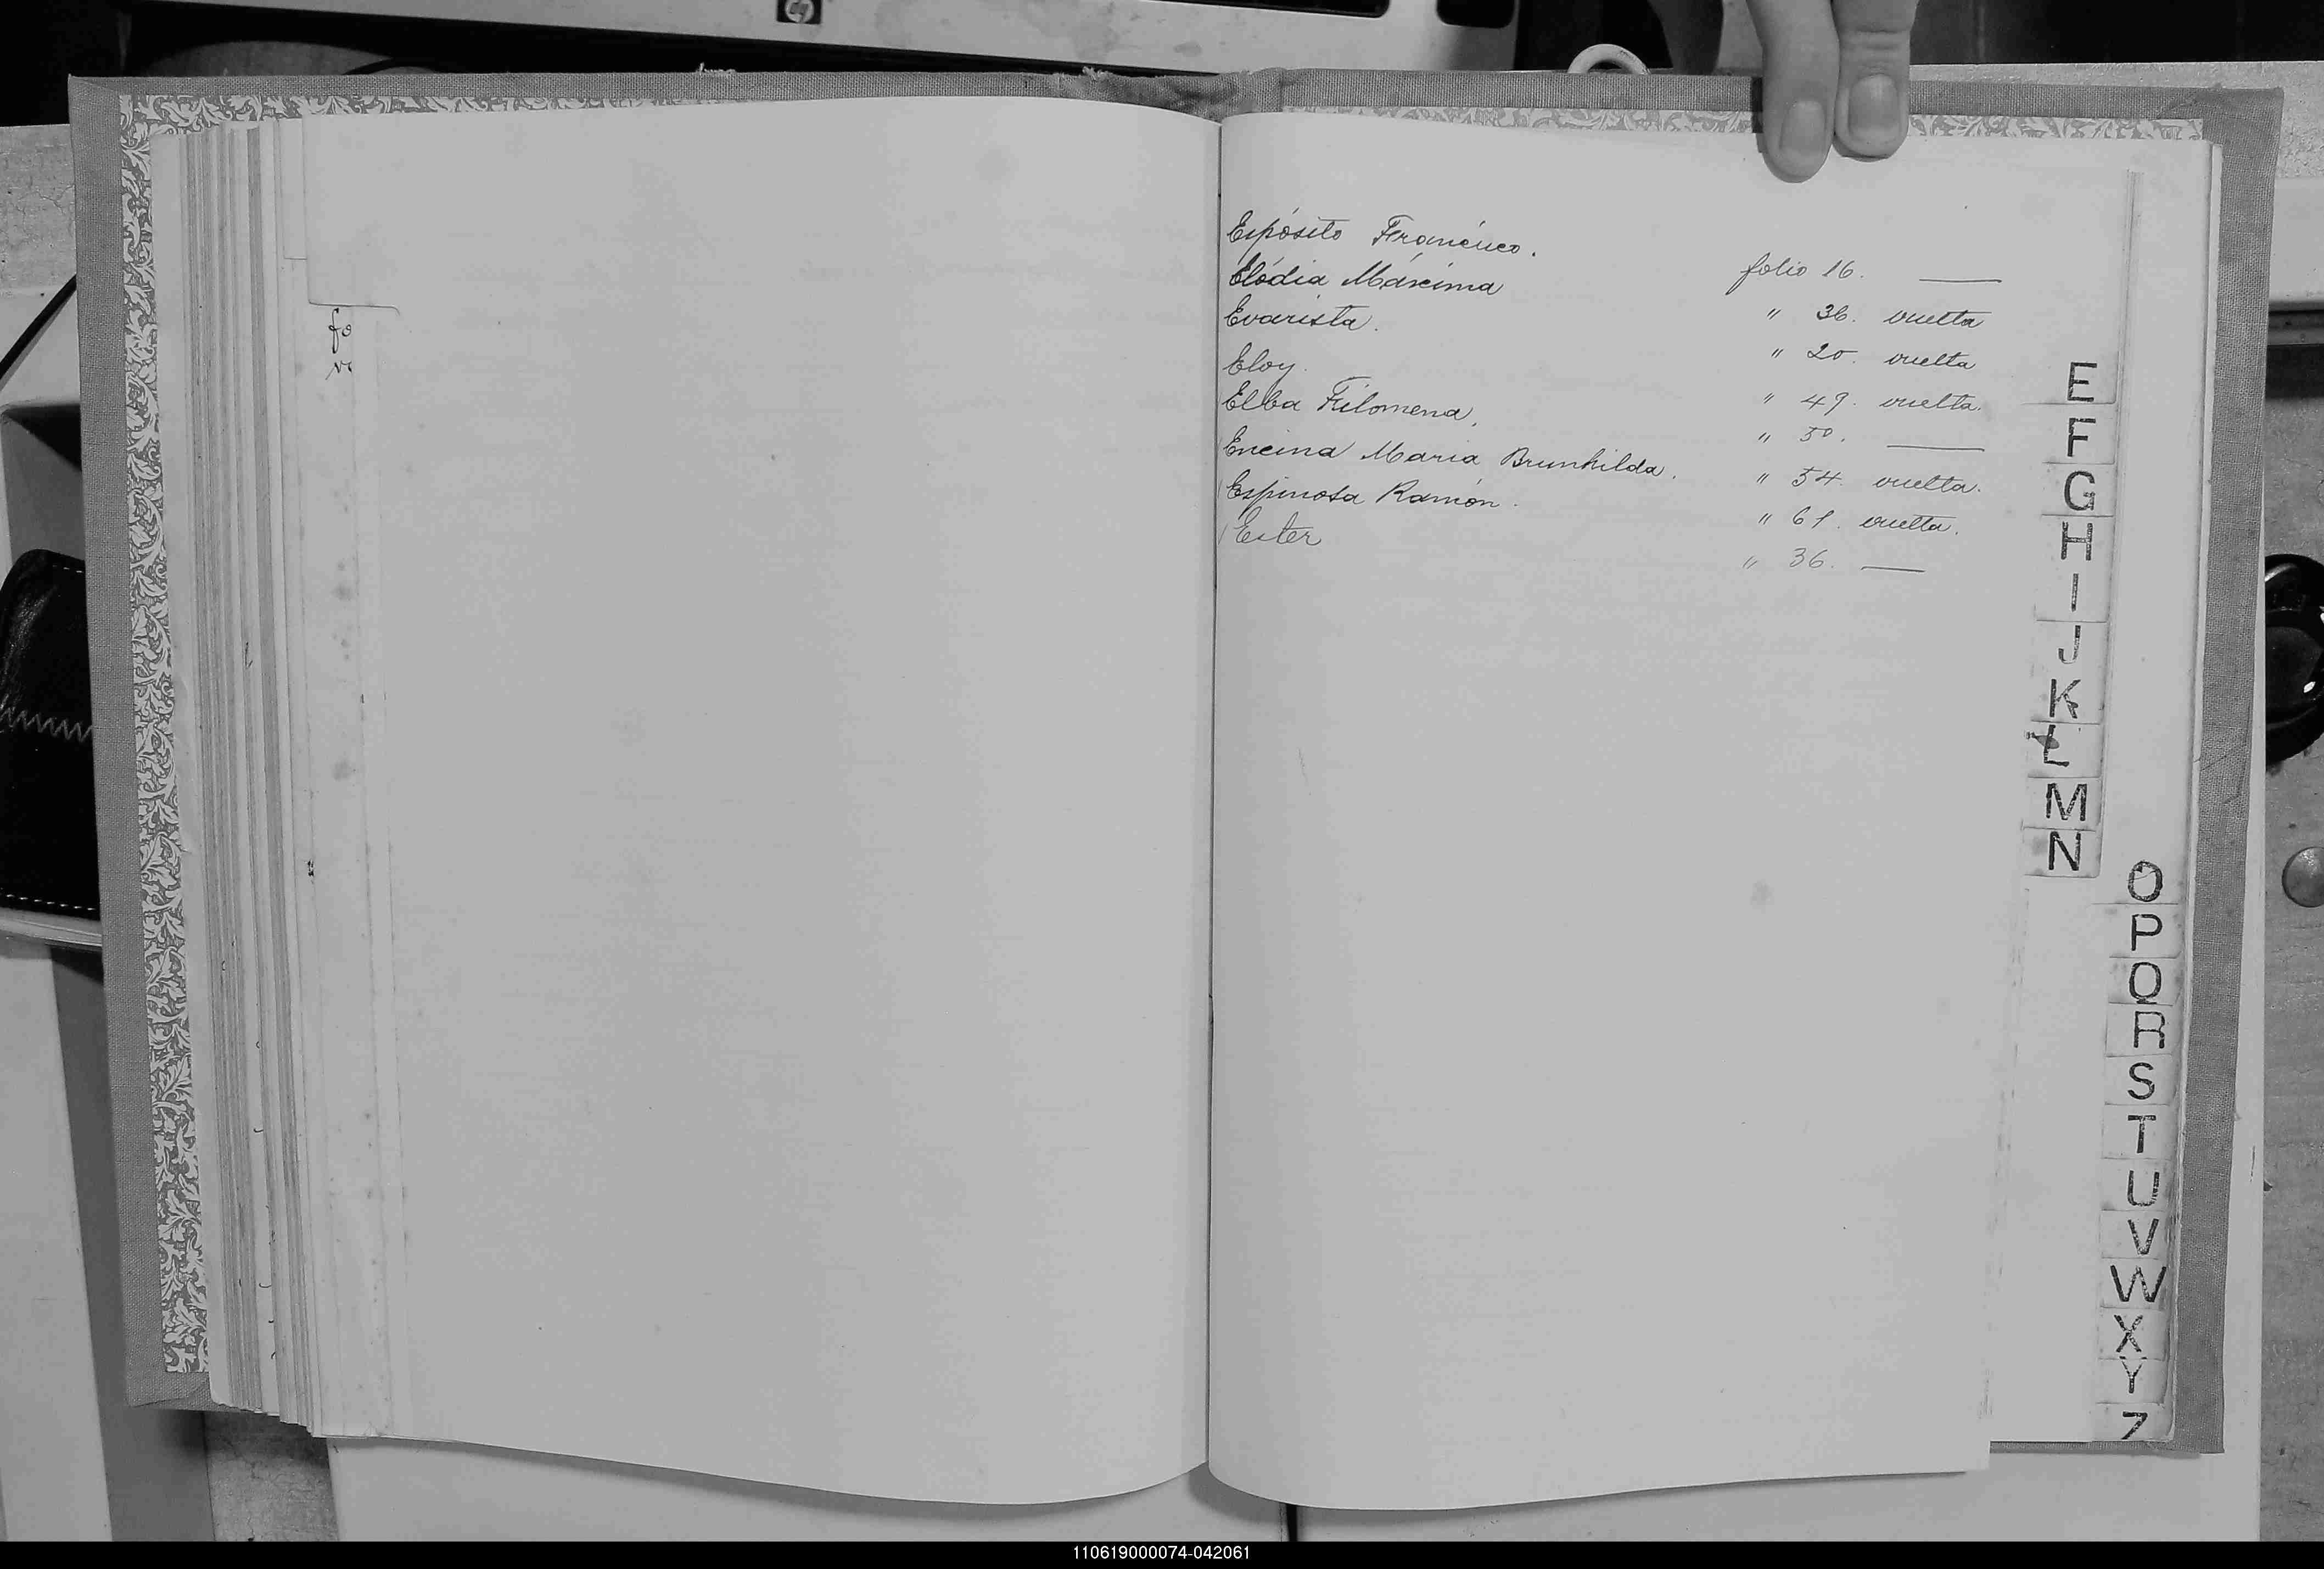 fo
Espósito Francisco.
folio 16. ——
Elódia Máxima
" 36. vuelta
Evarista.
" 20. vuelta
Eloy.
" 49. vuelta.
Elba Filomena,
" 50. ——
Encina Maria Brunhilda.
" 54. vuelta.
Espinosa Ramón.
" 61. vuelta.
Ester
" 36. ——
E
F
G
H
I
J
K
L
M
N
O
P
Q
R
S
T
U
V
W
X
Y
Z
110619000074-042061